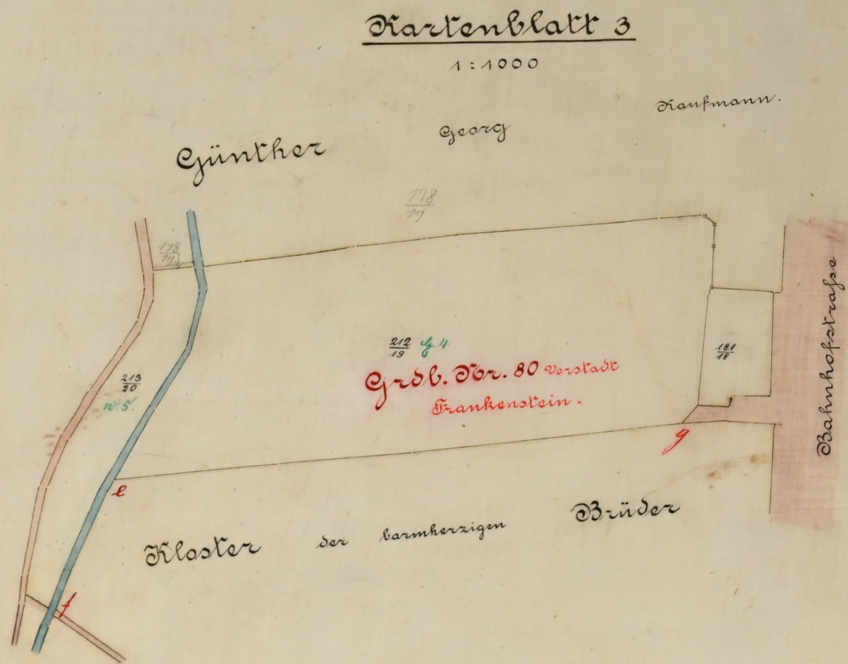 Kartenblatt 3
1:1000
Günther Georg Kaufmann.
178
17
178
212
19
G 4.
181
18
Grdb. Nr. 80 Vorstadt
Frankenstein.
213
20
W. 5.
Bahnhofstraße
g
e
Kloster der barmherzigen Brüder
f